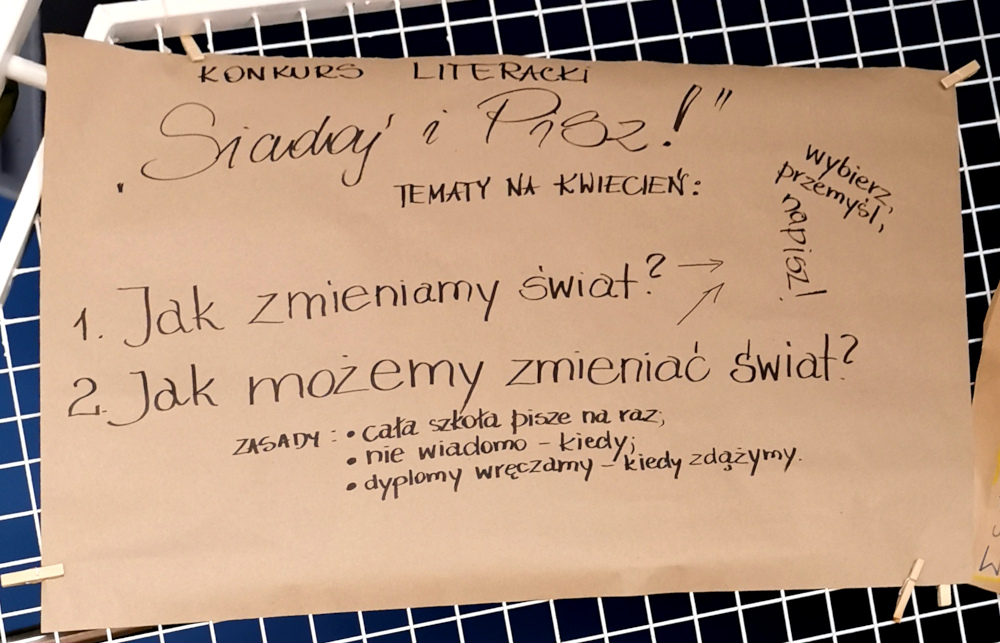 KONKURS LITERACKI
„Siadaj i Pisz!”
TEMATY NA KWIECIEŃ:
wybierz,
przemyśl,
napisz!
1. Jak zmieniamy świat? →
2. Jak możemy zmieniać świat?
ZASADY: • cała szkoła pisze na raz;
• nie wiadomo – kiedy;
• dyplomy wręczamy – kiedy zdążymy.